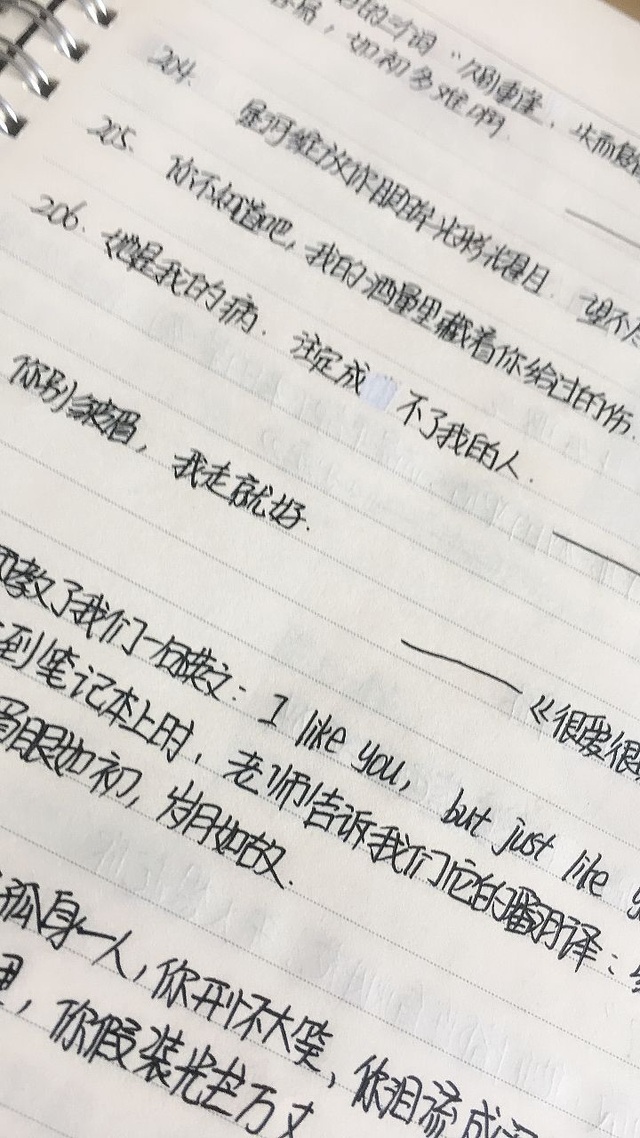 的诗词"
，如初多难啊
204. 星河绽放你眼眸光彩耀目. 望不
205. 你不知道吧，我的酒量里藏着你给过的伤.
206. 她是我的病. 注定成 不了我的人.
你别皱眉，我走就好.
教了我们一句英文：I like you, but just like
《很爱很
到笔记本上时，老师告诉我们它的翻译：
眉眼如初，岁月如故.
孤身一人，你开怀大笑，你泪流成河
里，你假装光芒万丈